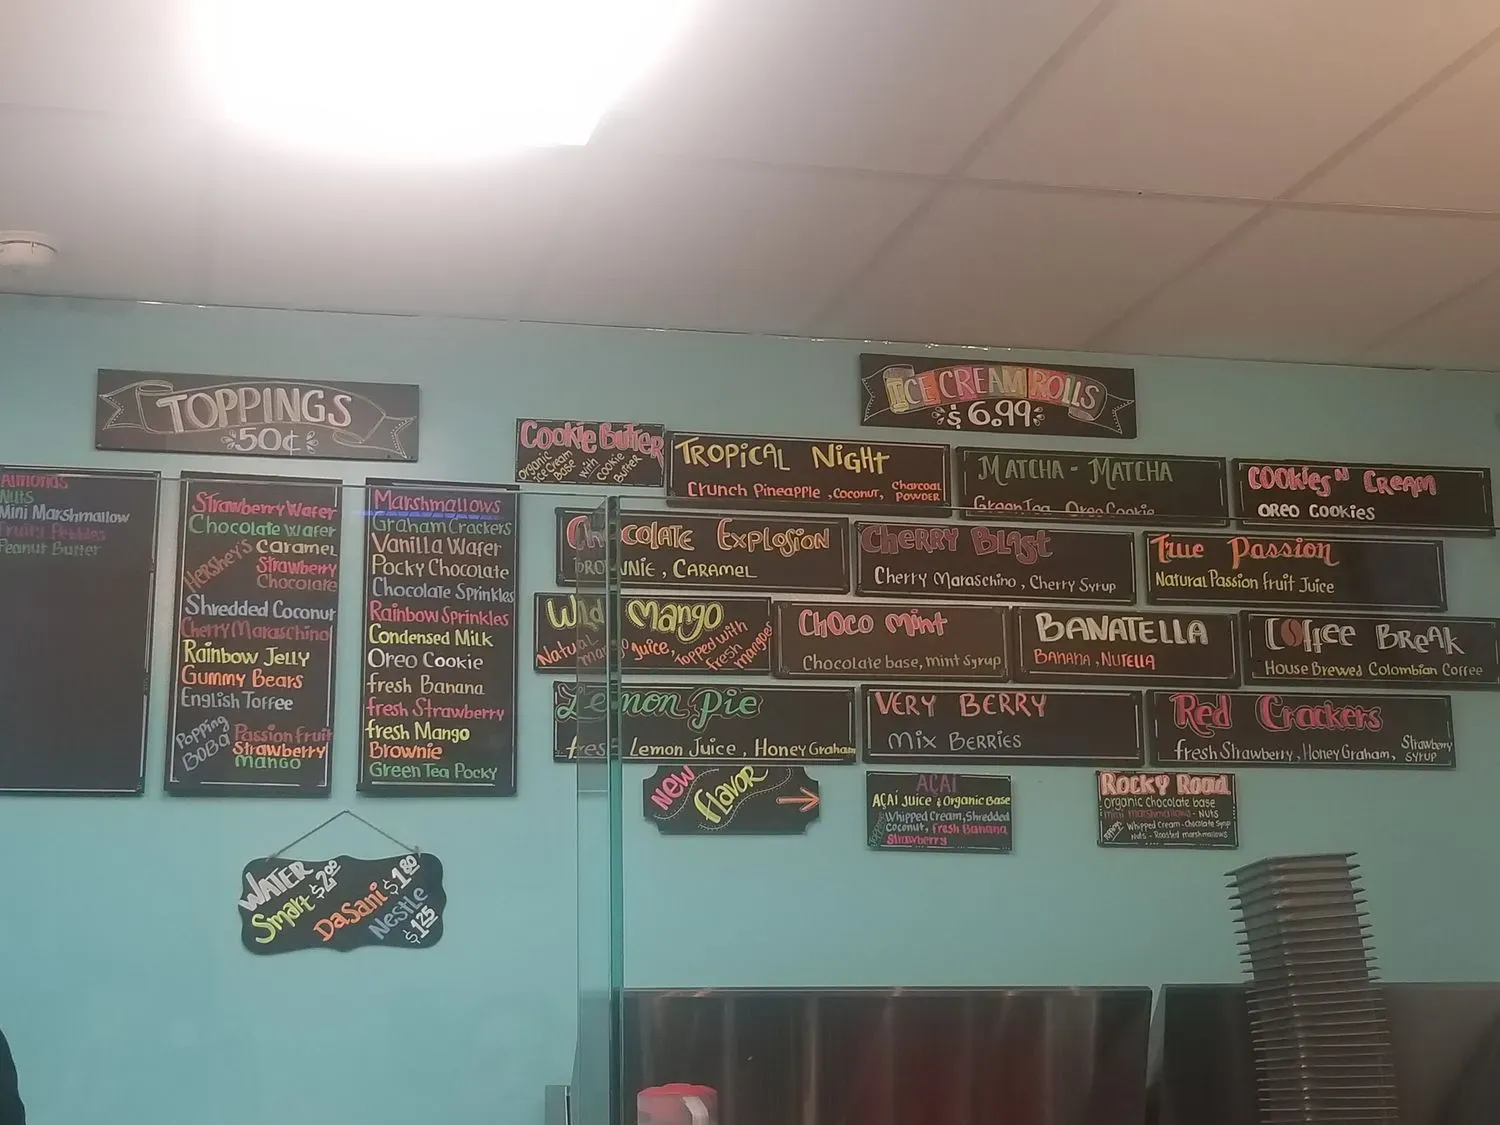 TOPPINGS
50¢
Almonds
Nuts
Mini Marshmallow
Fruity Pebbles
Peanut Butter
Strawberry Wafer
Chocolate Wafer
Hershey's Caramel
Strawberry
Chocolate
Shredded Coconut
Cherry Maraschino
Rainbow Jelly
Gummy Bears
English Toffee
Popping Boba Passion fruit
Strawberry
Mango
Marshmallows
Graham Crackers
Vanilla Wafer
Pocky Chocolate
Chocolate Sprinkles
Rainbow Sprinkles
Condensed Milk
Oreo Cookie
fresh Banana
fresh Strawberry
fresh Mango
Brownie
Green Tea Pocky
WATER
Smart $2.00
DaSani $1.80
Nestle $1.25
ICE CREAM ROLLS
$6.99
Cookie Butter
Organic Ice Cream Base with Cookie Butter
TROPICAL NIGHT
Crunch Pineapple, Coconut, Charcoal POWDER
MATCHA - MATCHA
Green Tea, Oreo Cookie
COOKIES N CREAM
OREO COOKIES
Chocolate Explosion
BROWNIE, CARAMEL
Cherry Blast
Cherry Maraschino, Cherry Syrup
True Passion
Natural Passion fruit Juice
Wild Mango
Natural mango Juice, Topped with fresh mangoes
Choco mint
Chocolate base, mint Syrup
BANATELLA
BANANA, NUTELLA
Coffee BREAK
House Brewed Colombian Coffee
Lemon Pie
fresh Lemon Juice, Honey Graham
VERY BERRY
MIX BERRIES
Red Crackers
fresh Strawberry, Honey Graham, Strawberry SYRUP
NEW flavor
AÇAI
AÇAI Juice & Organic Base
Toppings Whipped Cream, Shredded
Coconut, Fresh Banana
Strawberry
ROCKY ROAD
Organic chocolate base
mini marshmallows - NUTS
Whipped Cream - Chocolate Syrup
Nuts - Roasted marshmallows